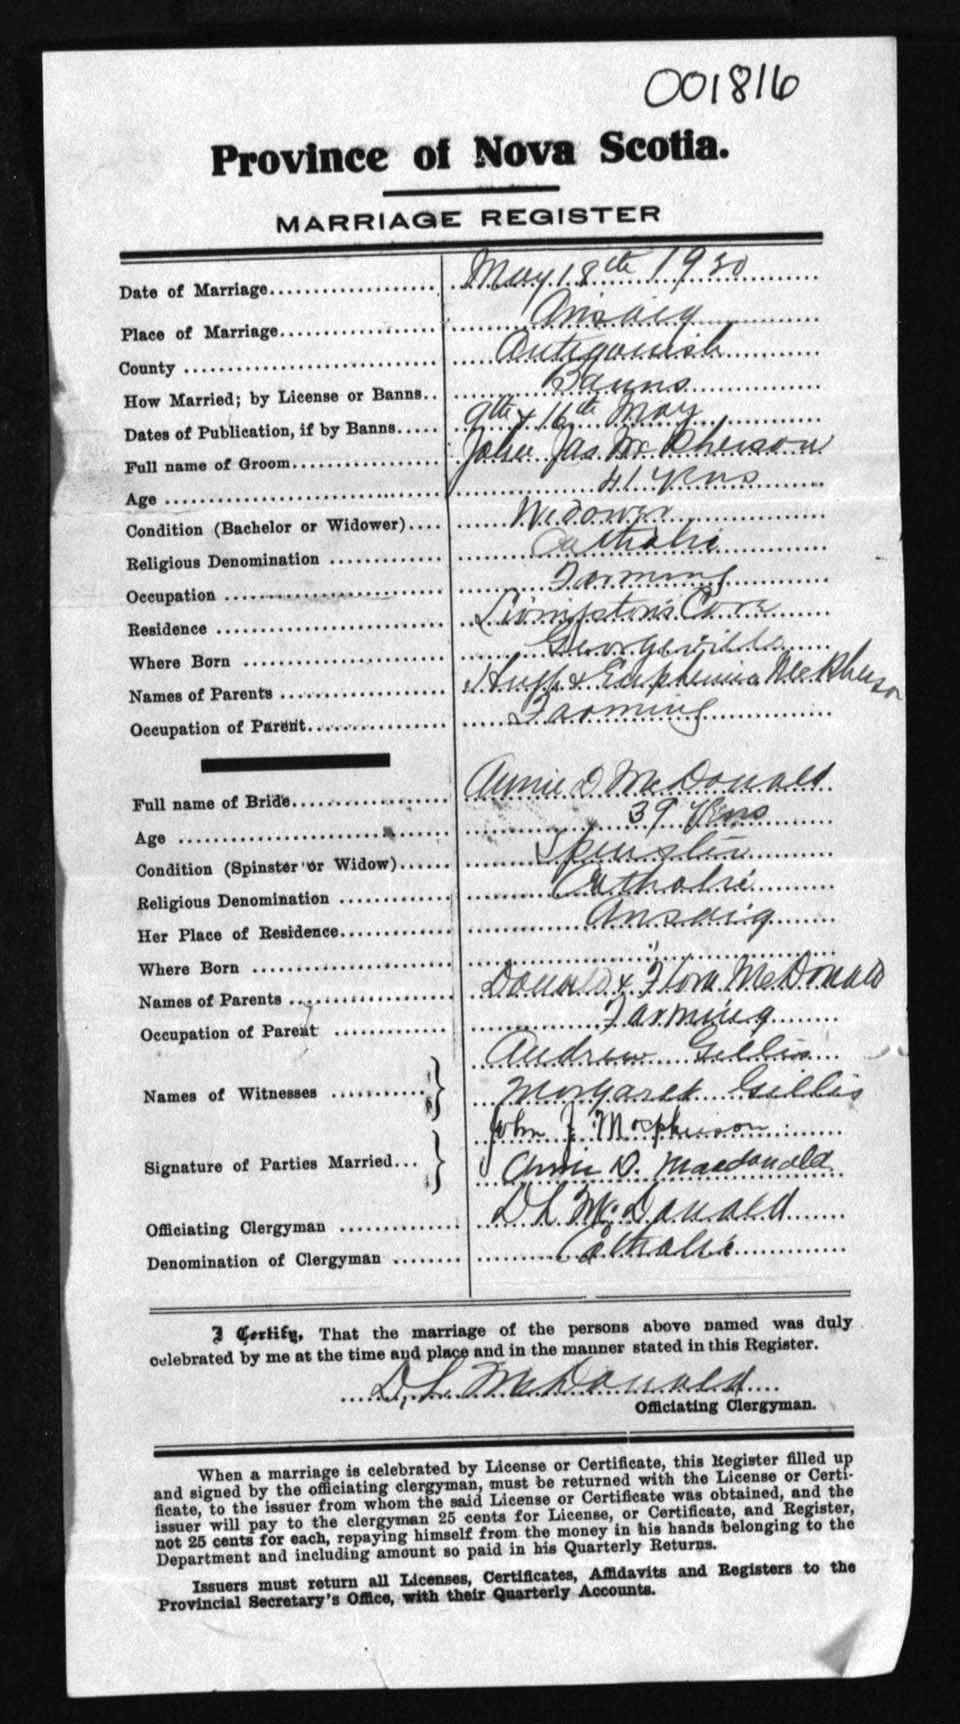 001816
Province of Nova Scotia.
MARRIAGE REGISTER
Date of Marriage May 18th 1920
Place of Marriage Arisaig
County Antigonish
How Married; by License or Banns.. Banns
Dates of Publication, if by Banns 9th & 16th May
Full name of Groom John Jas McPherson
Age 41 years
Condition (Bachelor or Widower) Widower
Religious Denomination Catholic
Occupation Farming
Residence Livingston's Cove
Where Born Georgeville
Names of Parents Hugh & Euphemia McPherson
Occupation of Parent Farming
Full name of Bride Annie D McDonald
Age 39 years
Condition (Spinster or Widow) Spinster
Religious Denomination Catholic
Her Place of Residence Arisaig
Where Born "
Names of Parents Donald & Flora McDonald
Occupation of Parent Farming
Names of Witnesses Andrew Gillis
Margaret Gillis
Signature of Parties Married John J Macpherson
Annie D. Macdonald
Officiating Clergyman D L McDonald
Denomination of Clergyman Catholic
I Certify, That the marriage of the persons above named was duly
celebrated by me at the time and place and in the manner stated in this Register.
D. L. McDonald
Officiating Clergyman.
When a marriage is celebrated by License or Certificate, this Register filled up
and signed by the officiating clergyman, must be returned with the License or Certi-
ficate, to the issuer from whom the said License or Certificate was obtained, and the
issuer will pay to the clergyman 25 cents for License, or Certificate, and Register,
not 25 cents for each, repaying himself from the money in his hands belonging to the
Department and including amount so paid in his Quarterly Returns.
Issuers must return all Licenses, Certificates, Affidavits and Registers to the
Provincial Secretary's Office, with their Quarterly Accounts.